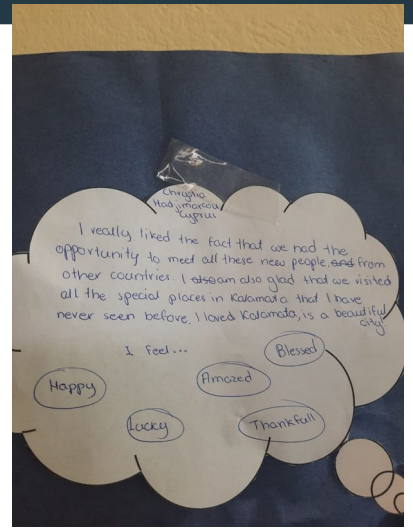 Chrystia
Hadjimarcou
Cyprus
I really liked the fact that we had the
opportunity to meet all these new people, and from
other countries. I also am also glad that we visited
all the special places in Kalamata that I have
never seen before. I loved Kalamata, is a beautiful
city!
I feel...
Blessed
Amazed
Happy
Lucky
Thankfull